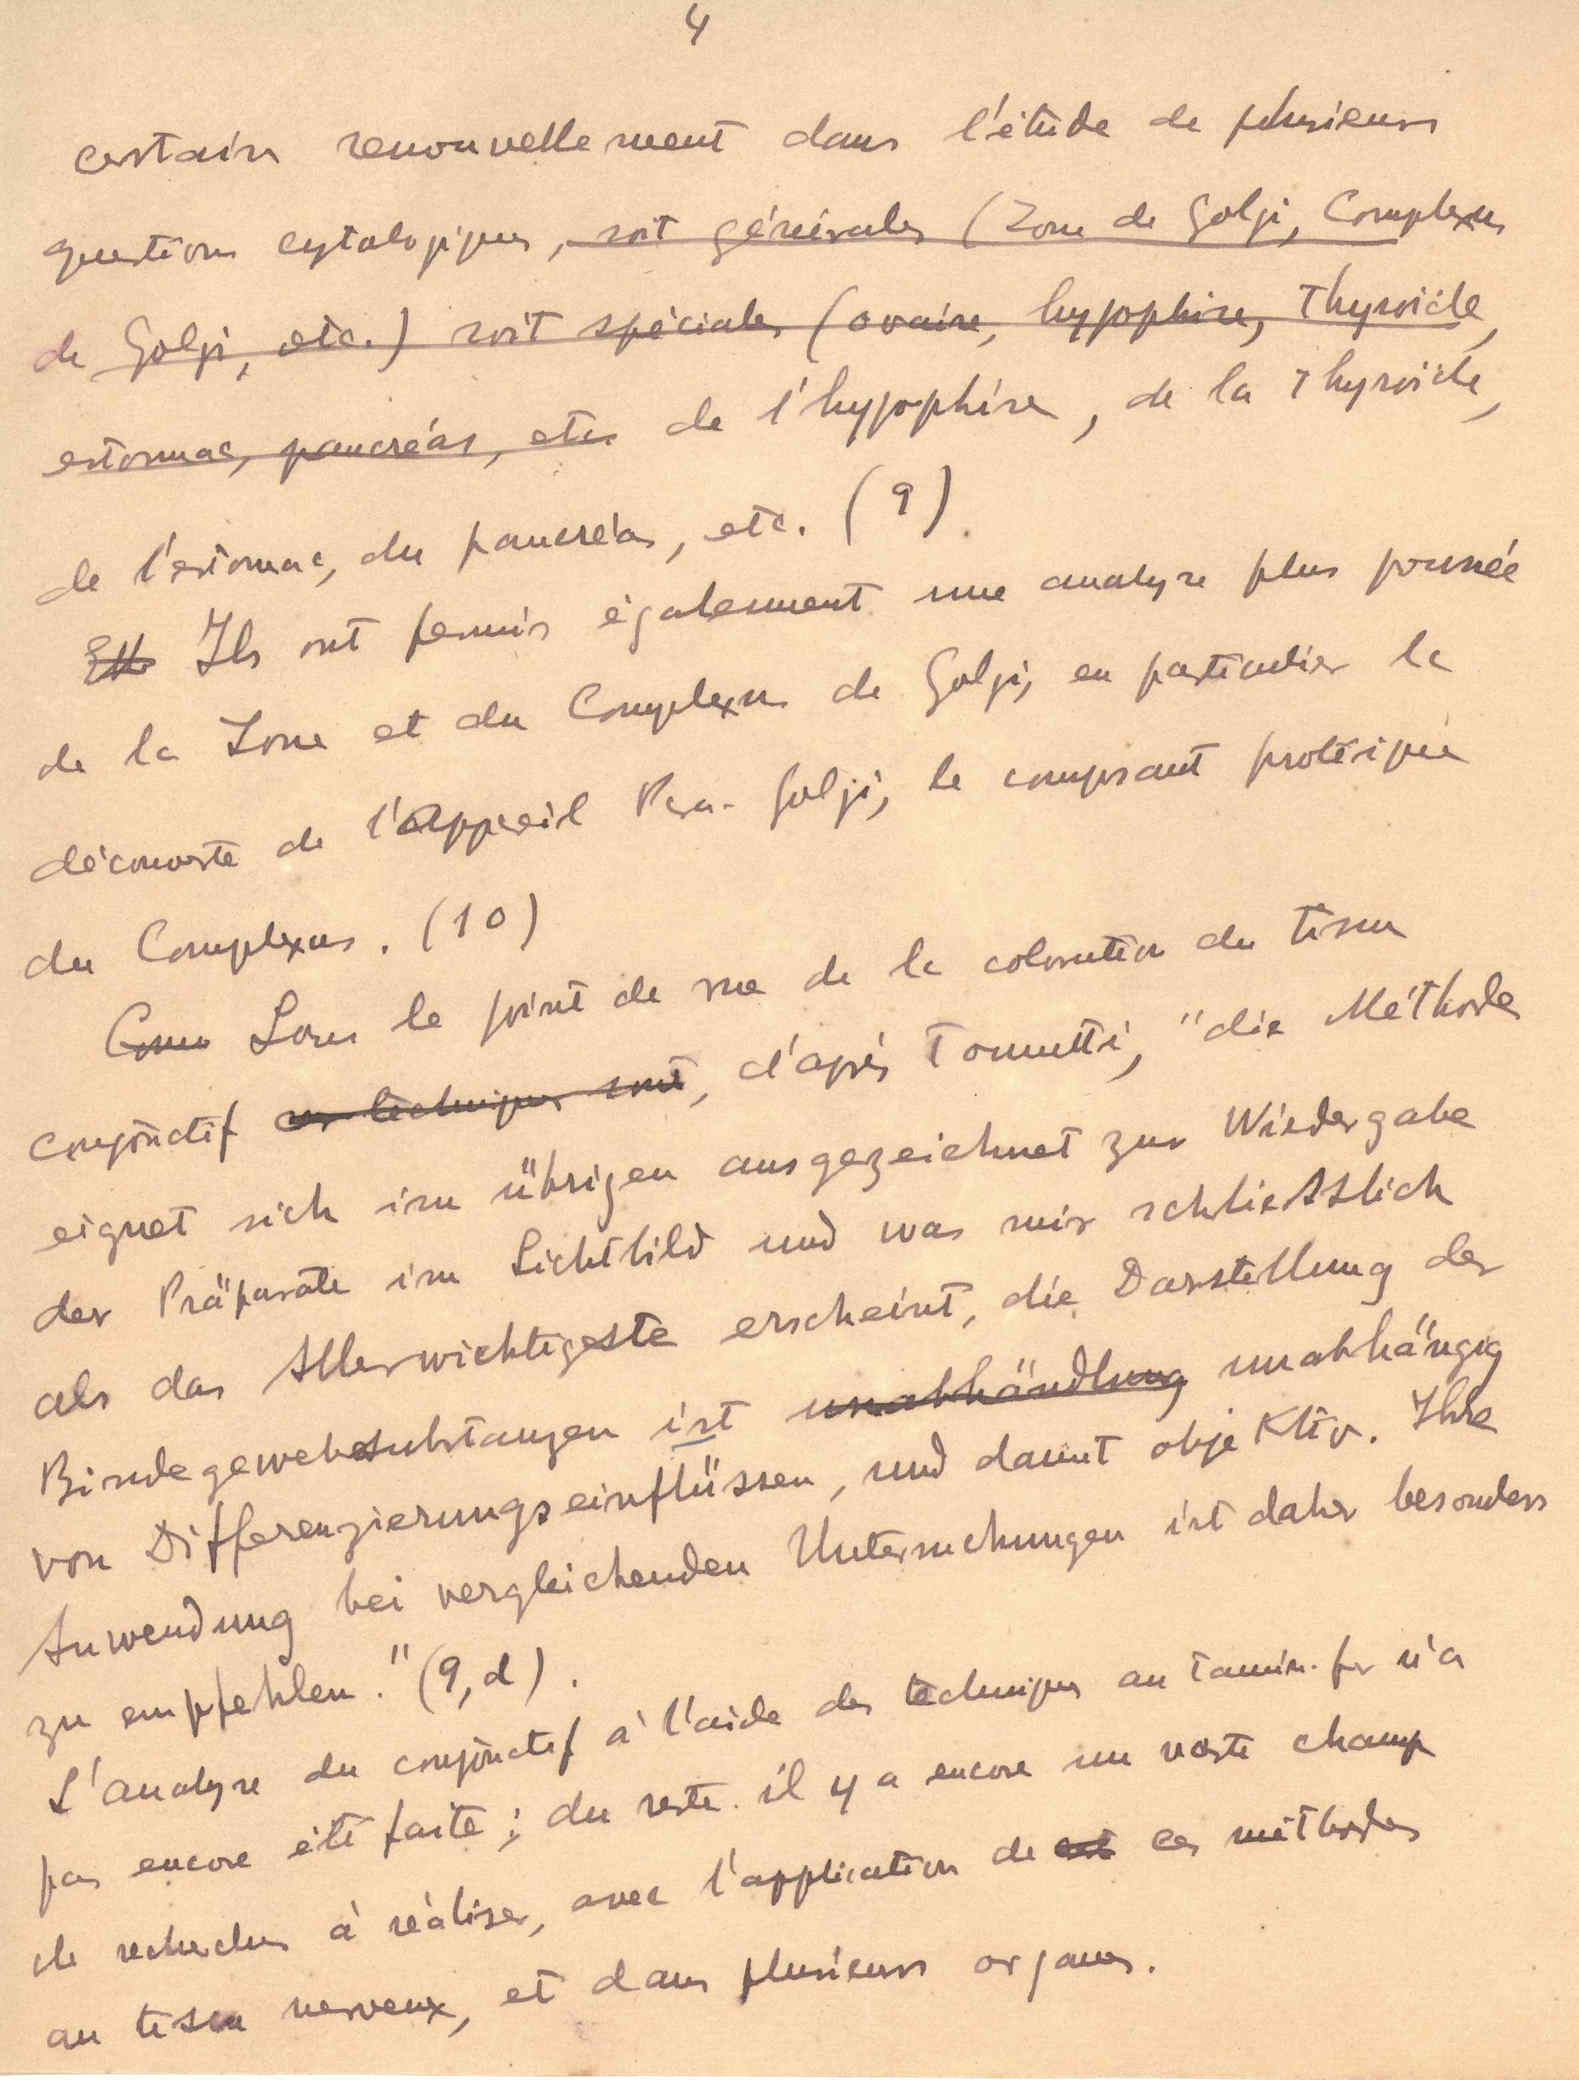 4
certain renouvellement dans l'étude de plusieurs
questions cytologiques, soit générales (Zone de Golgi, Complexus
de Golgi, etc.) soit spéciales (ovaire, hypophise, Thyroïde,
estomac, pancréas, etc de l'hypophise, de la Thyroïde,
de l'estomac, du pancréas, etc. (9)
Ils ont permis également une analyse plus poussée
de la Zone et du Complexus de Golgi, en particulier la
découverte de l'Appareil Para-Golgi, le composant protéique
du Complexus. (10)
Comme Sous le point de vue de la coloration du tissu
conjonctif ces techniques sont, d'après Tonutti, "die Méthode
eignet sich im übrigen ausgezeichnet zur Wiedergabe
der Präparate im Lichtbild und was mir schliesslich
als das Allerwichtigste erscheint, die Darstellung der
Bindegewebsubstanzen ist unabhändlung unabhängig
von Differenzierungseinflüssen, und damit objektiv. Ihre
Anwendung bei vergleichenden Untersuchungen ist daher besonders
zu empfehlen." (9,d).
L'analyse du conjonctif à l'aide des techniques au tannin-fer n'a
pas encore été faite; du reste il y a encore un vaste champ
de recherches à réaliser, avec l'application de ces méthodes
au tissu nerveux, et dans plusieurs organes.